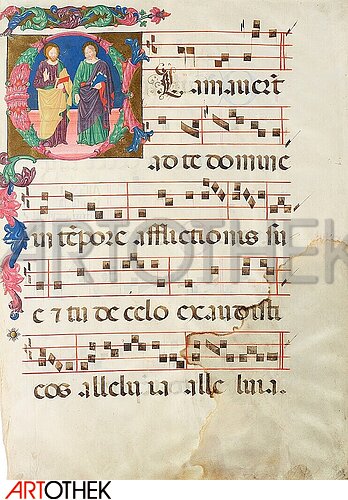 Clamauerūt
ad te domine
in tēpore afflictionis su
e ⁊ tu de celo exaudisti
eos alleluia alleluia.
ARTOTHEK
ARTOTHEK